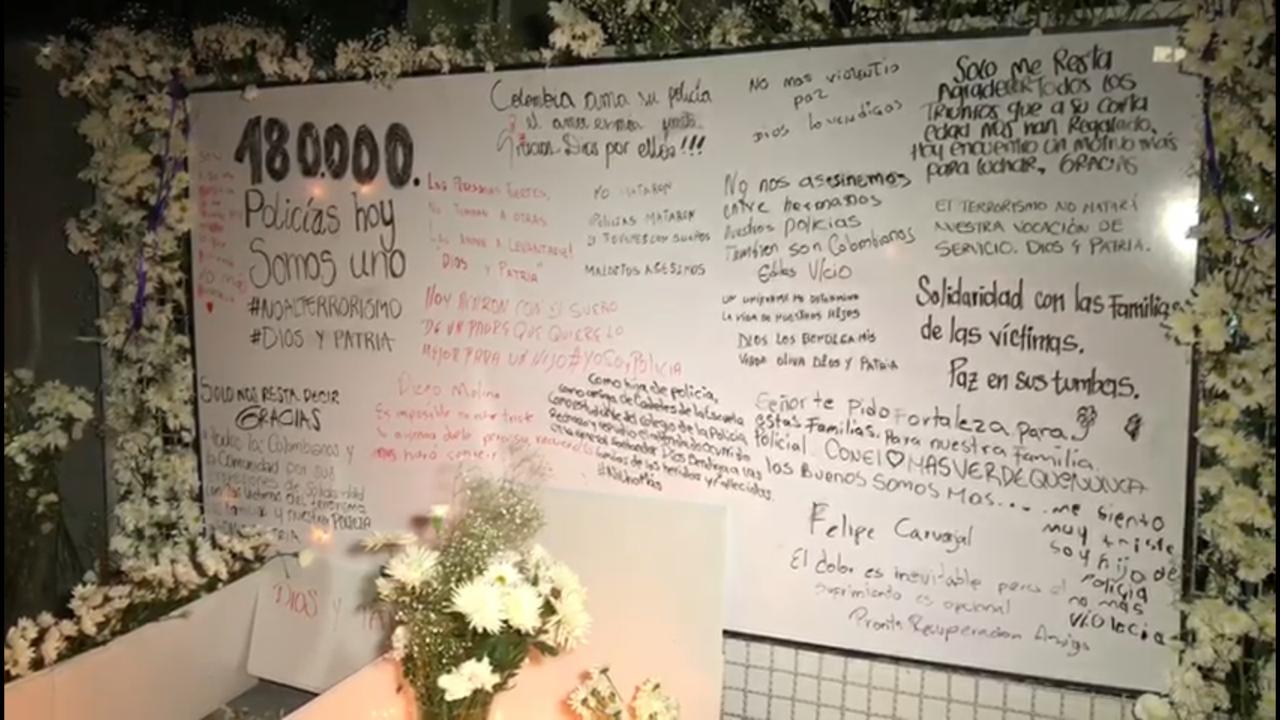 180.000.
Policías hoy
Somos uno
#NOALTERRORISMO
#DIOS Y PATRIA
Colombia ama su policía
Dios por ellos!!!
NO mas violentia
paz
DIOS lo vendigas
Solo me Resta
Agradecer Todos los
Triunfos que a su corta
edad nos han Regalado,
Hoy encuentro un motivo mas
para luchar, GRACIAS
Las Personas Fuertes,
No Tumban A OTRAS
Las AYUDAN A LEVANTARSE!
"DIOS Y PATRIA"
NO MATARON
POLICIAS MATARON
JOVENES CON SUEÑOS
MALDITOS ASESINOS
No nos asesinemos
entre hermanos
Nuestros policias
Tambien son Colombianos
EL TERRORISMO NO MATARÁ
NUESTRA VOCACIÓN DE
SERVICIO. DIOS Y PATRIA.
HOY MATARON CON EL SUEÑO
DE UN PADRE QUE QUIERE LO
MEJOR PARA UN HIJO #YOSOYPOLICIA
UN UNIFORME NO DETERMINA
LA VIDA DE NUESTROS HIJOS
DIOS LOS BENDIGA MIS
VERDE OLIVA DIOS Y PATRIA
Solidaridad con las Familias
de las víctimas.
Paz en sus tumbas.
SOLO NOS RESTA DECIR
GRACIAS
a todos los Colombianos y
la Comunidad por sus
expresiones de Solidaridad
con las victimas del terrorismo
familias y nuestra POLICIA
Diego Molina
Es imposible no estar triste
Como hija de policia,
como amiga de Cadetes de la Escuela
Como estudiante del colegio de la Policía
Rechazo y repudio el atentado ocurrido
en la General Santander Dios bendiga a las
familias de los heridos y fallecidos.
#NiUnoMás
Señor te pido Fortaleza para
estas Familias. Para nuestra Familia
Policial. CON EL ♡ MAS VERDE QUE NUNCA
los Buenos Somos Mas....
me siento
muy triste
soy hijo de
policia
no mas
violacia
Felipe Carvajal
El dolor es inevitable pero el
sufrimiento es opcional
Pronta Recuperacion Amigo
DIOS Y